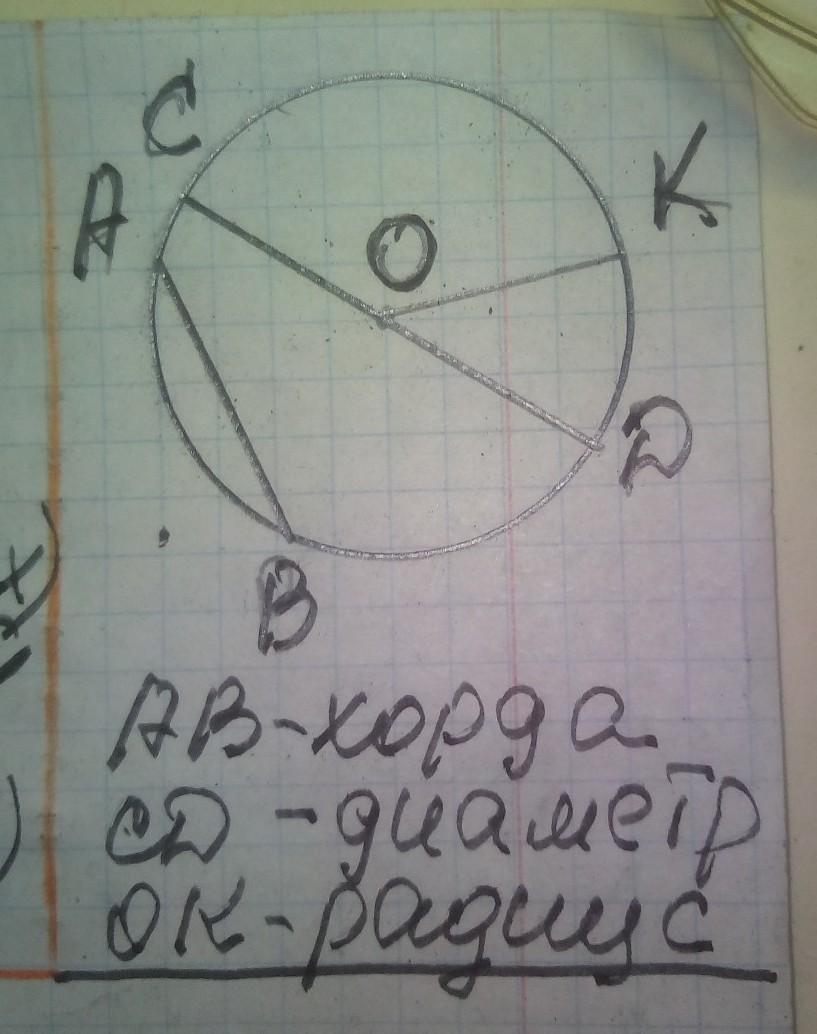 C
A
O
K
D
B
AB-хорда
CD-диаметр
OK-радиус